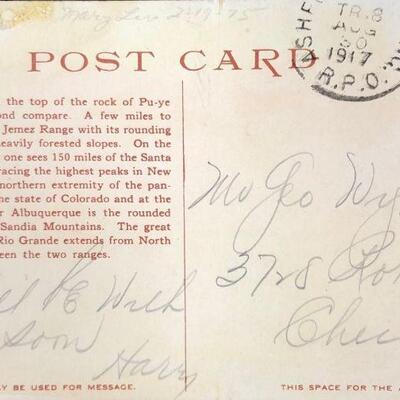 Mary Lou 2-19-75
POST CARD
TR. 8
AUG
30
1917
R.P.O.
the top of the rock of Pu-ye
ond compare. A few miles to
Jemez Range with its rounding
eavily forested slopes. On the
one sees 150 miles of the Santa
racing the highest peaks in New
northern extremity of the pan-
he state of Colorado and at the
r Albuquerque is the rounded
Sandia Mountains. The great
Rio Grande extends from North
een the two ranges.
Geo
3728
Soon
Harry
Y BE USED FOR MESSAGE.
THIS SPACE FOR THE A